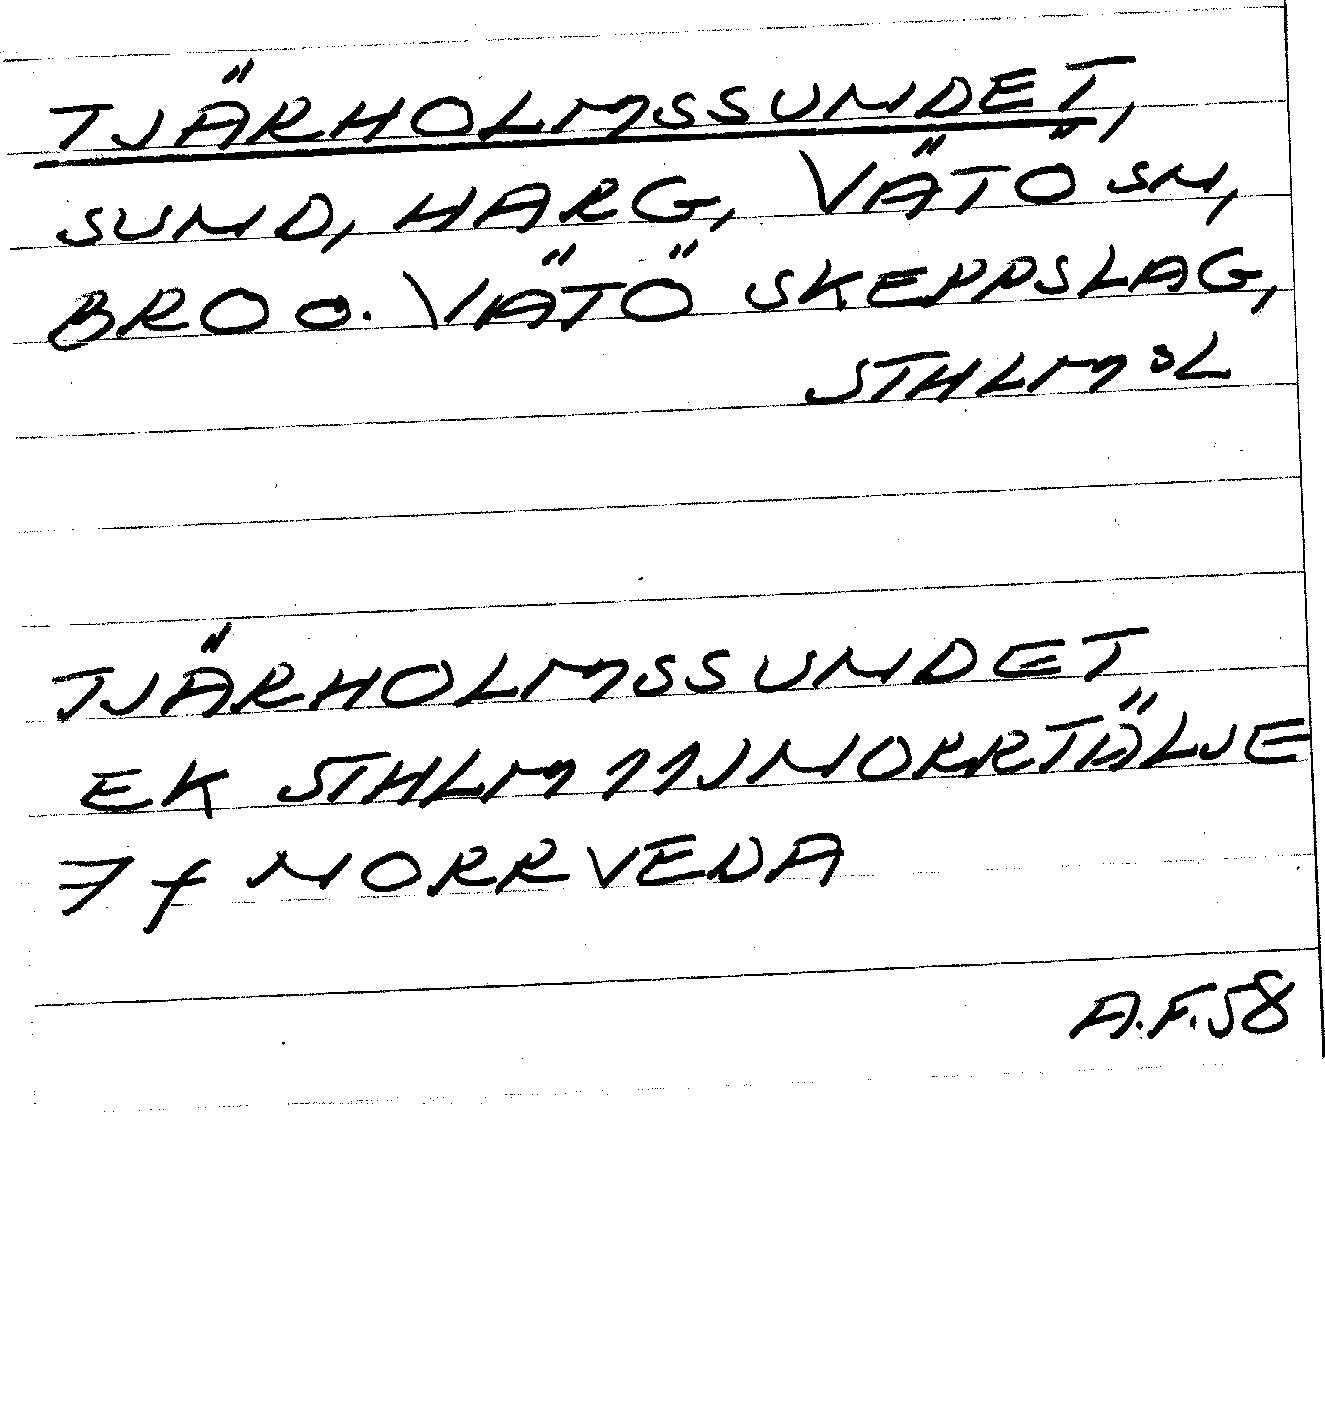 TJÄRHOLMSSUNDET,
SUND, HARG, VÄTÖ SN,
BRO O. VÄTÖ SKEPPSLAG,
STHLMS L
TJÄRHOLMSSUNDET
EK STHLM 11J NORRTÄLJE
7 f NORRVEDA
A.F. 58